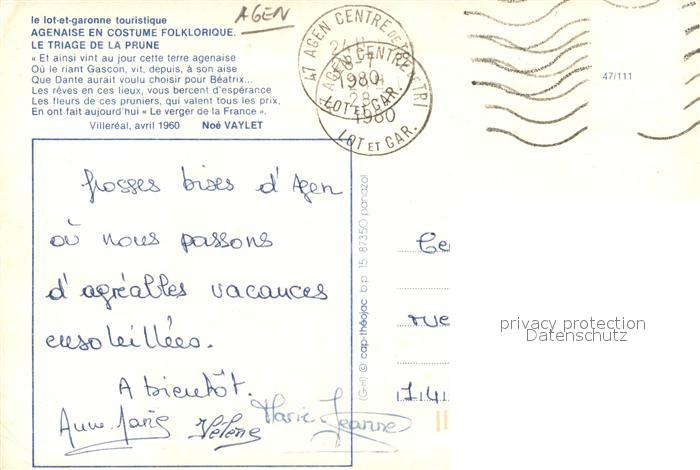 le lot-et-garonne touristique
AGENAISE EN COSTUME FOLKLORIQUE.
LE TRIAGE DE LA PRUNE
« Et ainsi vint au jour cette terre agenaise
Où le riant Gascon, vit, depuis, à son aise
Que Dante aurait voulu choisir pour Béatrix...
Les rêves en ces lieux, vous bercent d'espérance
Les fleurs de ces pruniers, qui valent tous les prix,
En ont fait aujourd'hui « Le verger de la France ».
Villeréal, avril 1960 Noé VAYLET
AGEN
47 AGEN CENTRE DE TRI
1980
LOT ET GAR.
AGEN CENTRE TRI
28
1980
LOT ET GAR.
47/111
Grosses bises d'Agen
où nous passons
d'agréables vacances
ensoleillées.
A bientôt.
Anne-Marie Hélène Marie-Jeanne
(G-H) © cap-théojac b.p. 15. 87350 panazol
rue
privacy protection
Datenschutz